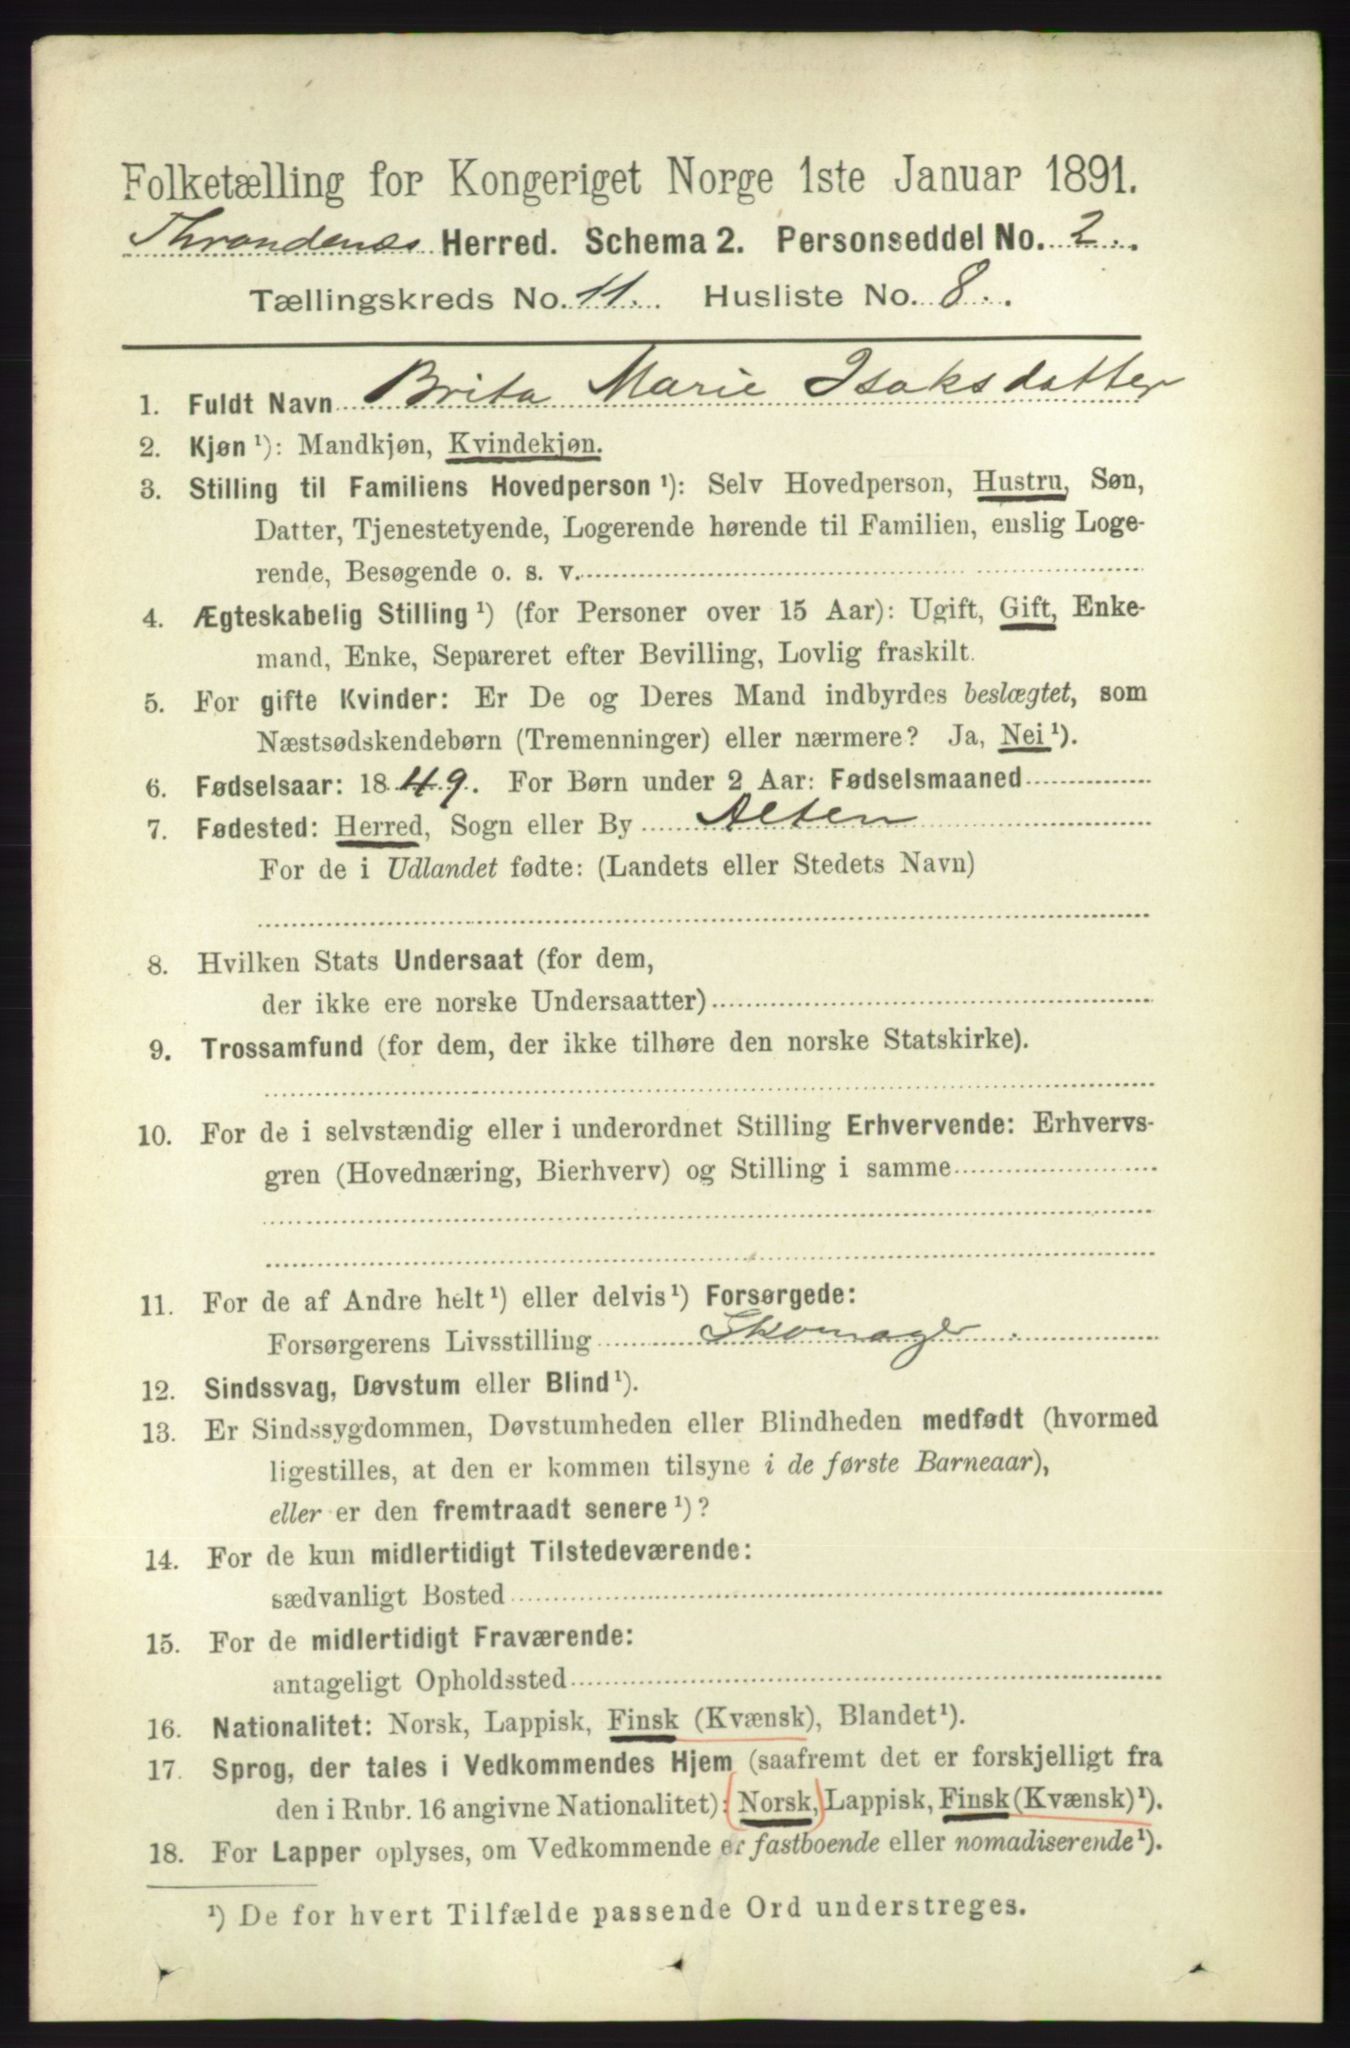 Folketælling for Kongeriget Norge 1ste Januar 1891.
Throndenæs Herred. Schema 2. Personseddel No. 2.
Tællingskreds No. 11. Husliste No. 8.
1. Fuldt Navn Brita Marie Isaksdatter
2. Kjøn¹): Mandkjøn, Kvindekjøn.
3. Stilling til Familiens Hovedperson¹): Selv Hovedperson, Hustru, Søn,
Datter, Tjenestetyende, Logerende hørende til Familien, enslig Loge-
rende, Besøgende o. s. v.
4. Ægteskabelig Stilling¹) (for Personer over 15 Aar): Ugift, Gift, Enke-
mand, Enke, Separeret efter Bevilling, Lovlig fraskilt.
5. For gifte Kvinder: Er De og Deres Mand indbyrdes beslægtet, som
Næstsødskendebørn (Tremenninger) eller nærmere? Ja, Nei¹).
6. Fødselsaar: 1849. For Børn under 2 Aar: Fødselsmaaned
7. Fødested: Herred, Sogn eller By Alten
For de i Udlandet fødte: (Landets eller Stedets Navn)
8. Hvilken Stats Undersaat (for dem,
der ikke ere norske Undersaatter)
9. Trossamfund (for dem, der ikke tilhøre den norske Statskirke).
10. For de i selvstændig eller i underordnet Stilling Erhvervende: Erhvervs-
gren (Hovednæring, Bierhverv) og Stilling i samme
11. For de af Andre helt¹) eller delvis¹) Forsørgede:
Forsørgerens Livsstilling Skomager.
12. Sindssvag, Døvstum eller Blind¹).
13. Er Sindssygdommen, Døvstumheden eller Blindheden medfødt (hvormed
ligestilles, at den er kommen tilsyne i de første Barneaar),
eller er den fremtraadt senere¹)?
14. For de kun midlertidigt Tilstedeværende:
sædvanligt Bosted
15. For de midlertidigt Fraværende:
antageligt Opholdssted
16. Nationalitet: Norsk, Lappisk, Finsk (Kvænsk), Blandet¹).
17. Sprog, der tales i Vedkommendes Hjem (saafremt det er forskjelligt fra
den i Rubr. 16 angivne Nationalitet): (Norsk,) Lappisk, Finsk (Kvænsk)¹).
18. For Lapper oplyses, om Vedkommende er fastboende eller nomadiserende¹).
¹) De for hvert Tilfælde passende Ord understreges.